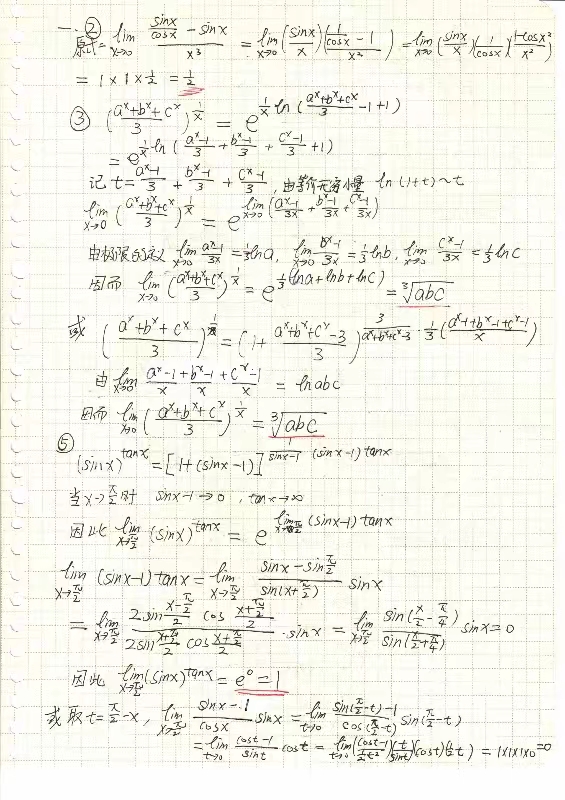 一. ② 原式 = lim_{x→0} (sinx/cosx - sinx)/x³ = lim_{x→0} (sinx/x)((1/cosx - 1)/x²) = lim_{x→0} (sinx/x)(1/cosx)((1-cosx²)/x²)
= 1×1×1/2 = 1/2
③ ((aˣ+bˣ+cˣ)/3)^{1/x} = e^{1/x ln((aˣ+bˣ+cˣ)/3 -1+1)}
= e^{1/x ln((aˣ-1)/3 + (bˣ-1)/3 + (cˣ-1)/3 + 1)}
记 t = (aˣ-1)/3 + (bˣ-1)/3 + (cˣ-1)/3, 由等价无穷小量 ln(1+t)~t
lim_{x→0} ((aˣ+bˣ+cˣ)/3)^{1/x} = e^{lim_{x→0} ((aˣ-1)/3x + (bˣ-1)/3x + (cˣ-1)/3x)}
由极限的定义 lim_{x→0} (aˣ-1)/3x = 1/3 lna, lim_{x→0} (bˣ-1)/3x = 1/3 lnb, lim_{x→0} (cˣ-1)/3x = 1/3 lnc
因而 lim_{x→0} ((aˣ+bˣ+cˣ)/3)^{1/x} = e^{1/3(lna+lnb+lnc)} = ∛abc
或 ((aˣ+bˣ+cˣ)/3)^{1/x} = (1+ (aˣ+bˣ+cˣ-3)/3)^{3/(aˣ+bˣ+cˣ-3) · 1/3 ((aˣ-1+bˣ-1+cˣ-1)/x)}
由 lim_{x→0} (aˣ-1)/x + (bˣ-1)/x + (cˣ-1)/x = lnabc
因而 lim_{x→0} ((aˣ+bˣ+cˣ)/3)^{1/x} = ∛abc
⑤
(sinx)^{tanx} = [1+(sinx-1)]^{1/(sinx-1) (sinx-1)tanx}
当x→π/2时 sinx-1→0, tanx→∞
因此 lim_{x→π/2} (sinx)^{tanx} = e^{lim_{x→π/2} (sinx-1)tanx}
lim_{x→π/2} (sinx-1)tanx = lim_{x→π/2} (sinx-sinπ/2)/(sin(x+π/2)) sinx
= lim_{x→π/2} (2sin((x-π/2)/2) cos((x+π/2)/2))/(2sin((x+π/2)/2) cos((x+π/2)/2)) · sinx = lim_{x→π/2} sin(x/2-π/4)/sin(x/2+π/4) sinx = 0
因此 lim_{x→π/2} (sinx)^{tanx} = e⁰ = 1
或取t=π/2-x, lim_{x→π/2} (sinx-1)/cosx sinx = lim_{t→0} (sin(π/2-t)-1)/cos(π/2-t) sin(π/2-t)
= lim_{t→0} (cost-1)/sint cost = lim_{t→0} ((cost-1)/(1/2 t²))(t/sint)(cost)(1/2 t) = 1×1×1×0=0